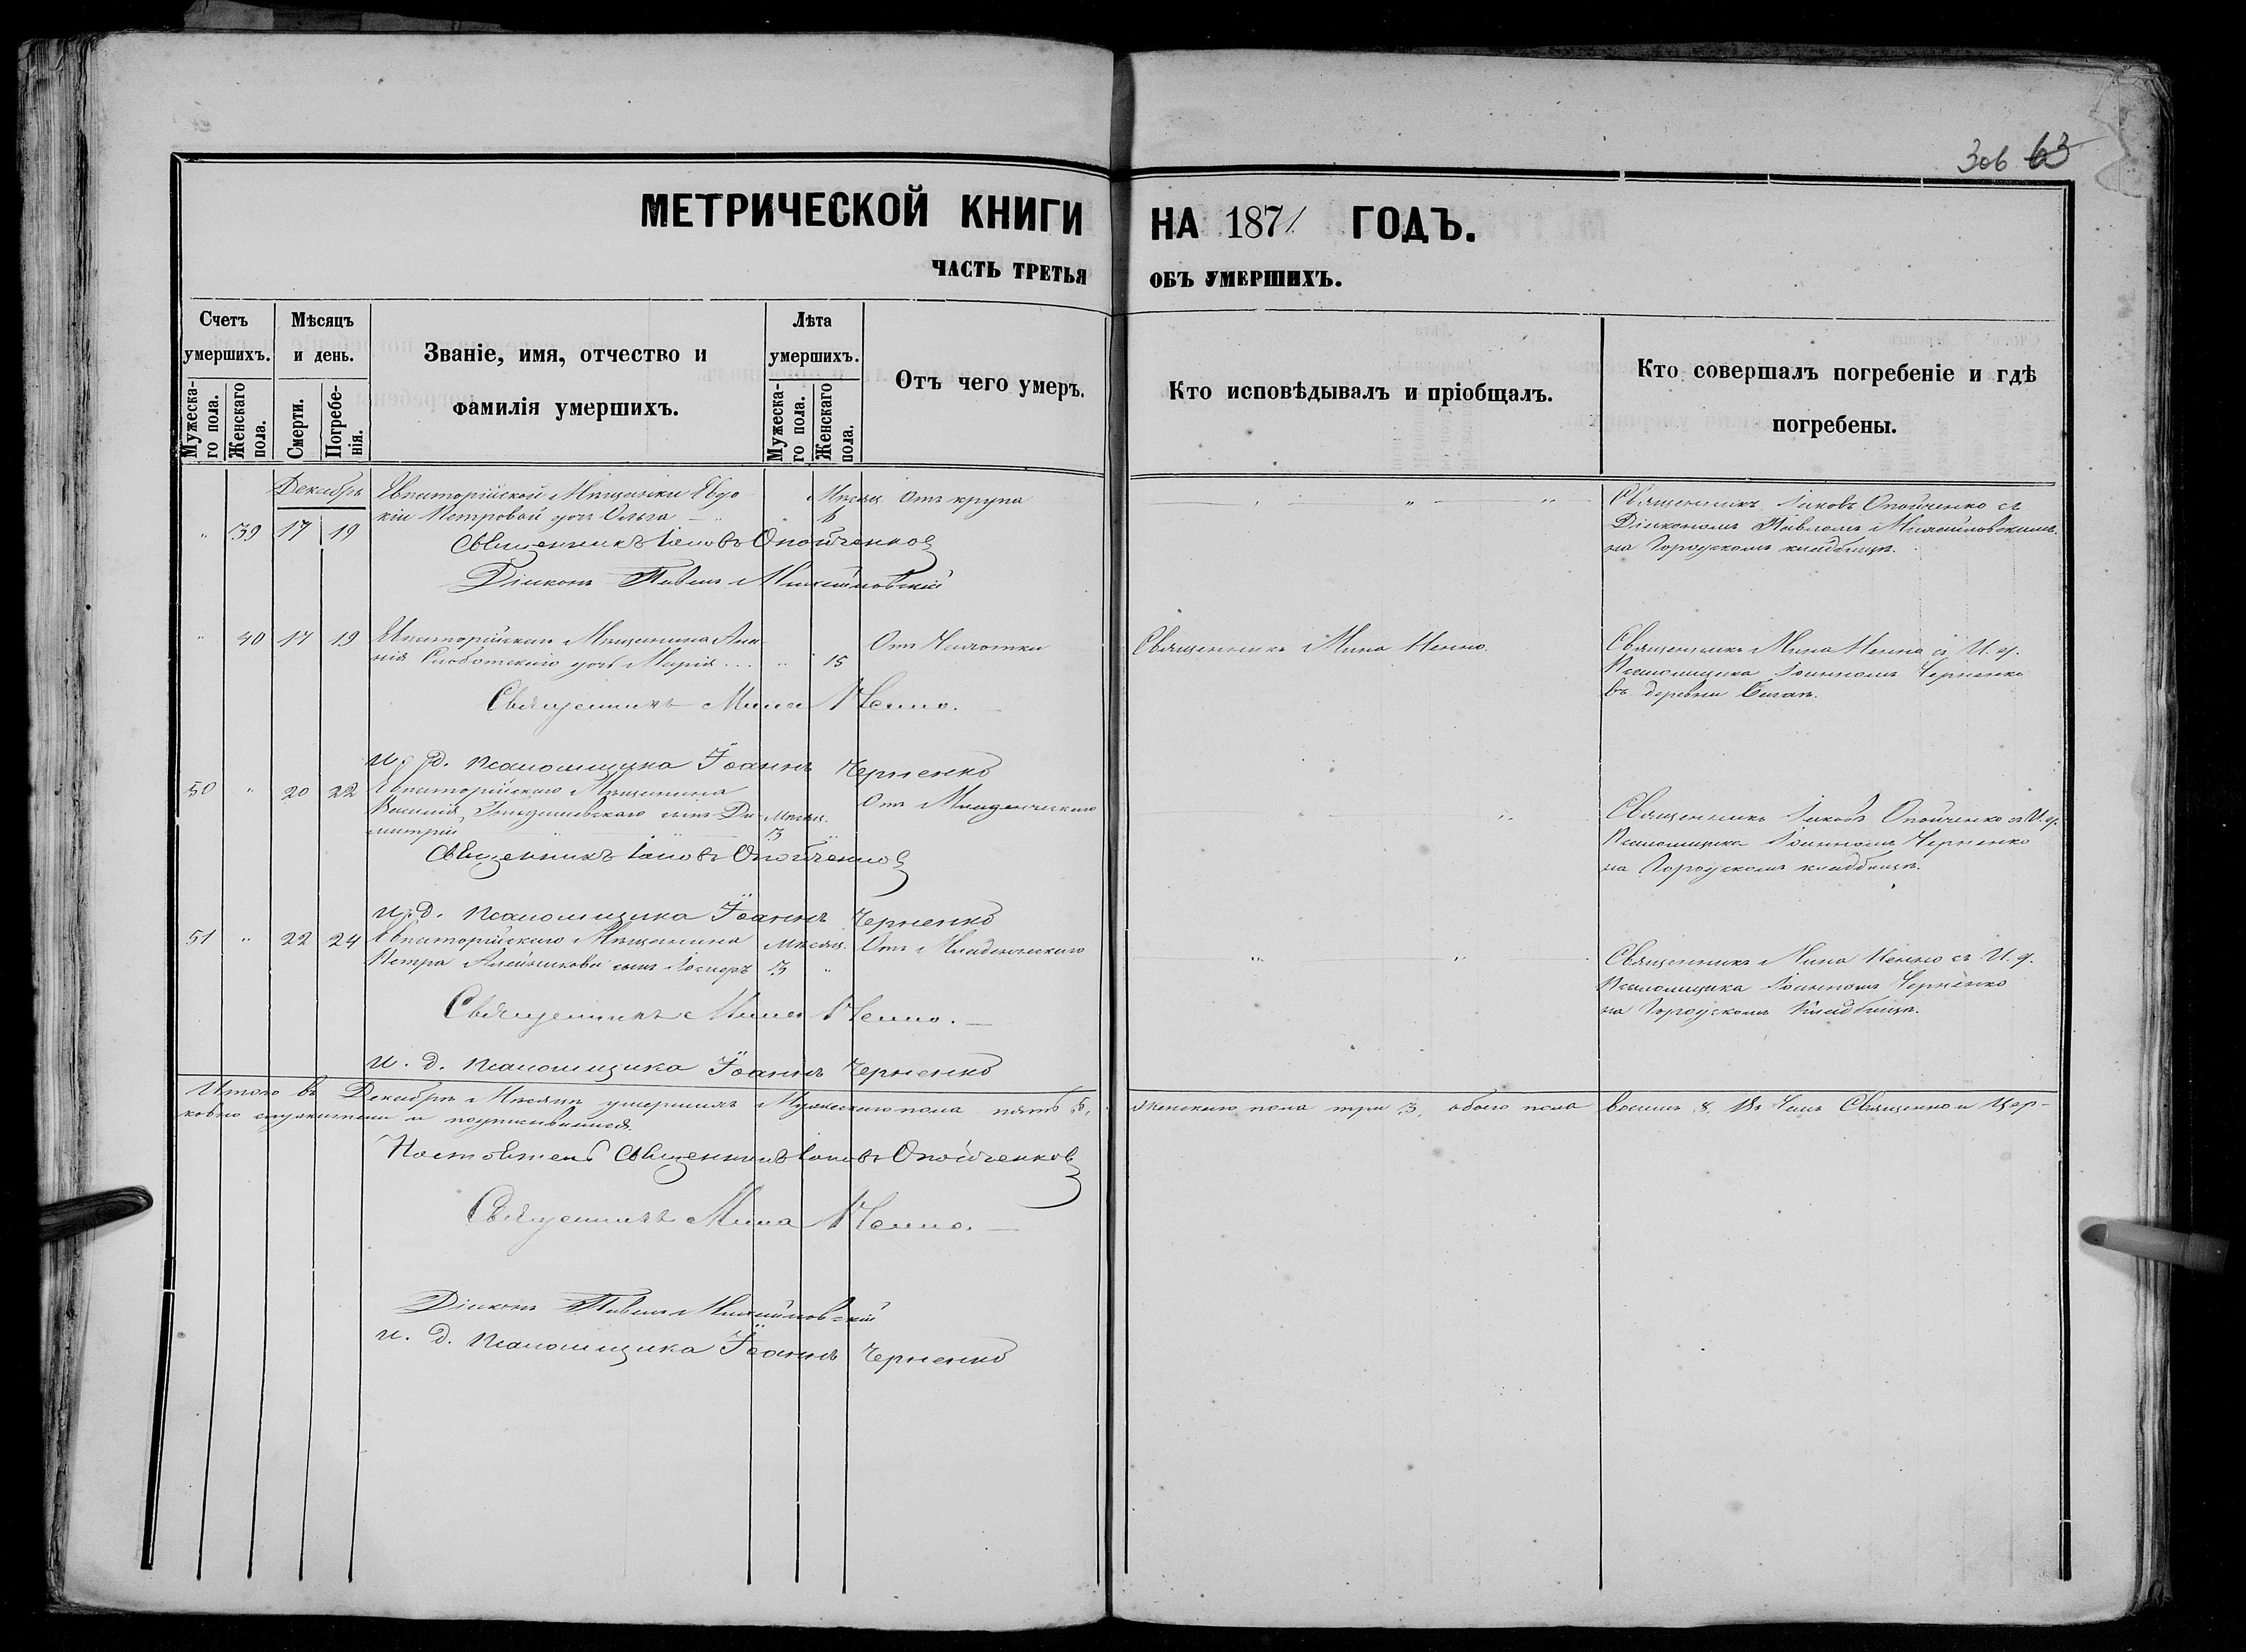 306 63
МЕТРИЧЕСКОЙ КНИГИ НА 1871 ГОДЪ.
ЧАСТЬ ТРЕТЬЯ ОБЪ УМЕРШИХЪ.
Счетъ умершихъ.
Мужескаго пола.
Женскаго пола.
Мѣсяцъ и день.
Смерти.
Погребенія.
Званіе, имя, отчество и
фамилія умершихъ.
Лѣта умершихъ.
Мужескаго пола.
Женскаго пола.
Отъ чего умеръ.
Кто исповѣдывалъ и пріобщалъ.
Кто совершалъ погребеніе и гдѣ
погребены.
Декабрь
" 39 17 19
Евпаторійской Мѣщанки Евдо
кіи Петровой дочь Ольга
Мѣсяц.
Отъ крупа
Священникъ Іаковъ Опойченко съ
Діакономъ Павломъ Михайловскимъ
на Городскомъ кладбищѣ.
Священникъ Іаковъ Опойченко
Діаконъ Павелъ Михайловскій
" 40 17 19
Евпаторійскаго Мѣщанина Ана-
нія Слободскаго дочь Марія " 15
Отъ Чахотки
Священникъ Мина Ненно.
Священникъ Мина Ненно съ И. д.
Псаломщика Іоанномъ Черненко
въ деревни
Священникъ Мина Ненно.
И. д. псаломщика Іоаннъ Черненко
50 " 20 22
Евпаторійскаго Мѣщанина
Василія сынъ Ди-
митрій
Мѣсяц.
3
Отъ Младенческаго
Священникъ Іаковъ Опойченко съ И. д.
Псаломщика Іоанномъ Черненко
на Городскомъ кладбищѣ.
Священникъ Іаковъ Опойченко
И. д. псаломщика Іоаннъ Черненко
51 " 22 24
Евпаторійскаго Мѣщанина
Петра Алейникова сынъ
Мѣсяц.
3 "
Отъ Младенческаго
Священникъ Мина Ненно съ И. д.
Псаломщика Іоанномъ Черненко
на Городскомъ Кладбищѣ.
Священникъ Мина Ненно.
И. д. псаломщика Іоаннъ Черненко
Итого въ Декабрѣ Мѣсяцѣ умершихъ Мужескаго пола пять 5, женскаго пола три 3, обоего пола восемь 8. Въ чемъ Священно и Цер-
ковно служители и подписываемся.
Настоятель Священникъ Іаковъ Опойченко
Священникъ Мина Ненно.
Діаконъ Павелъ Михайловскій
и. д. псаломщика Іоаннъ Черненко